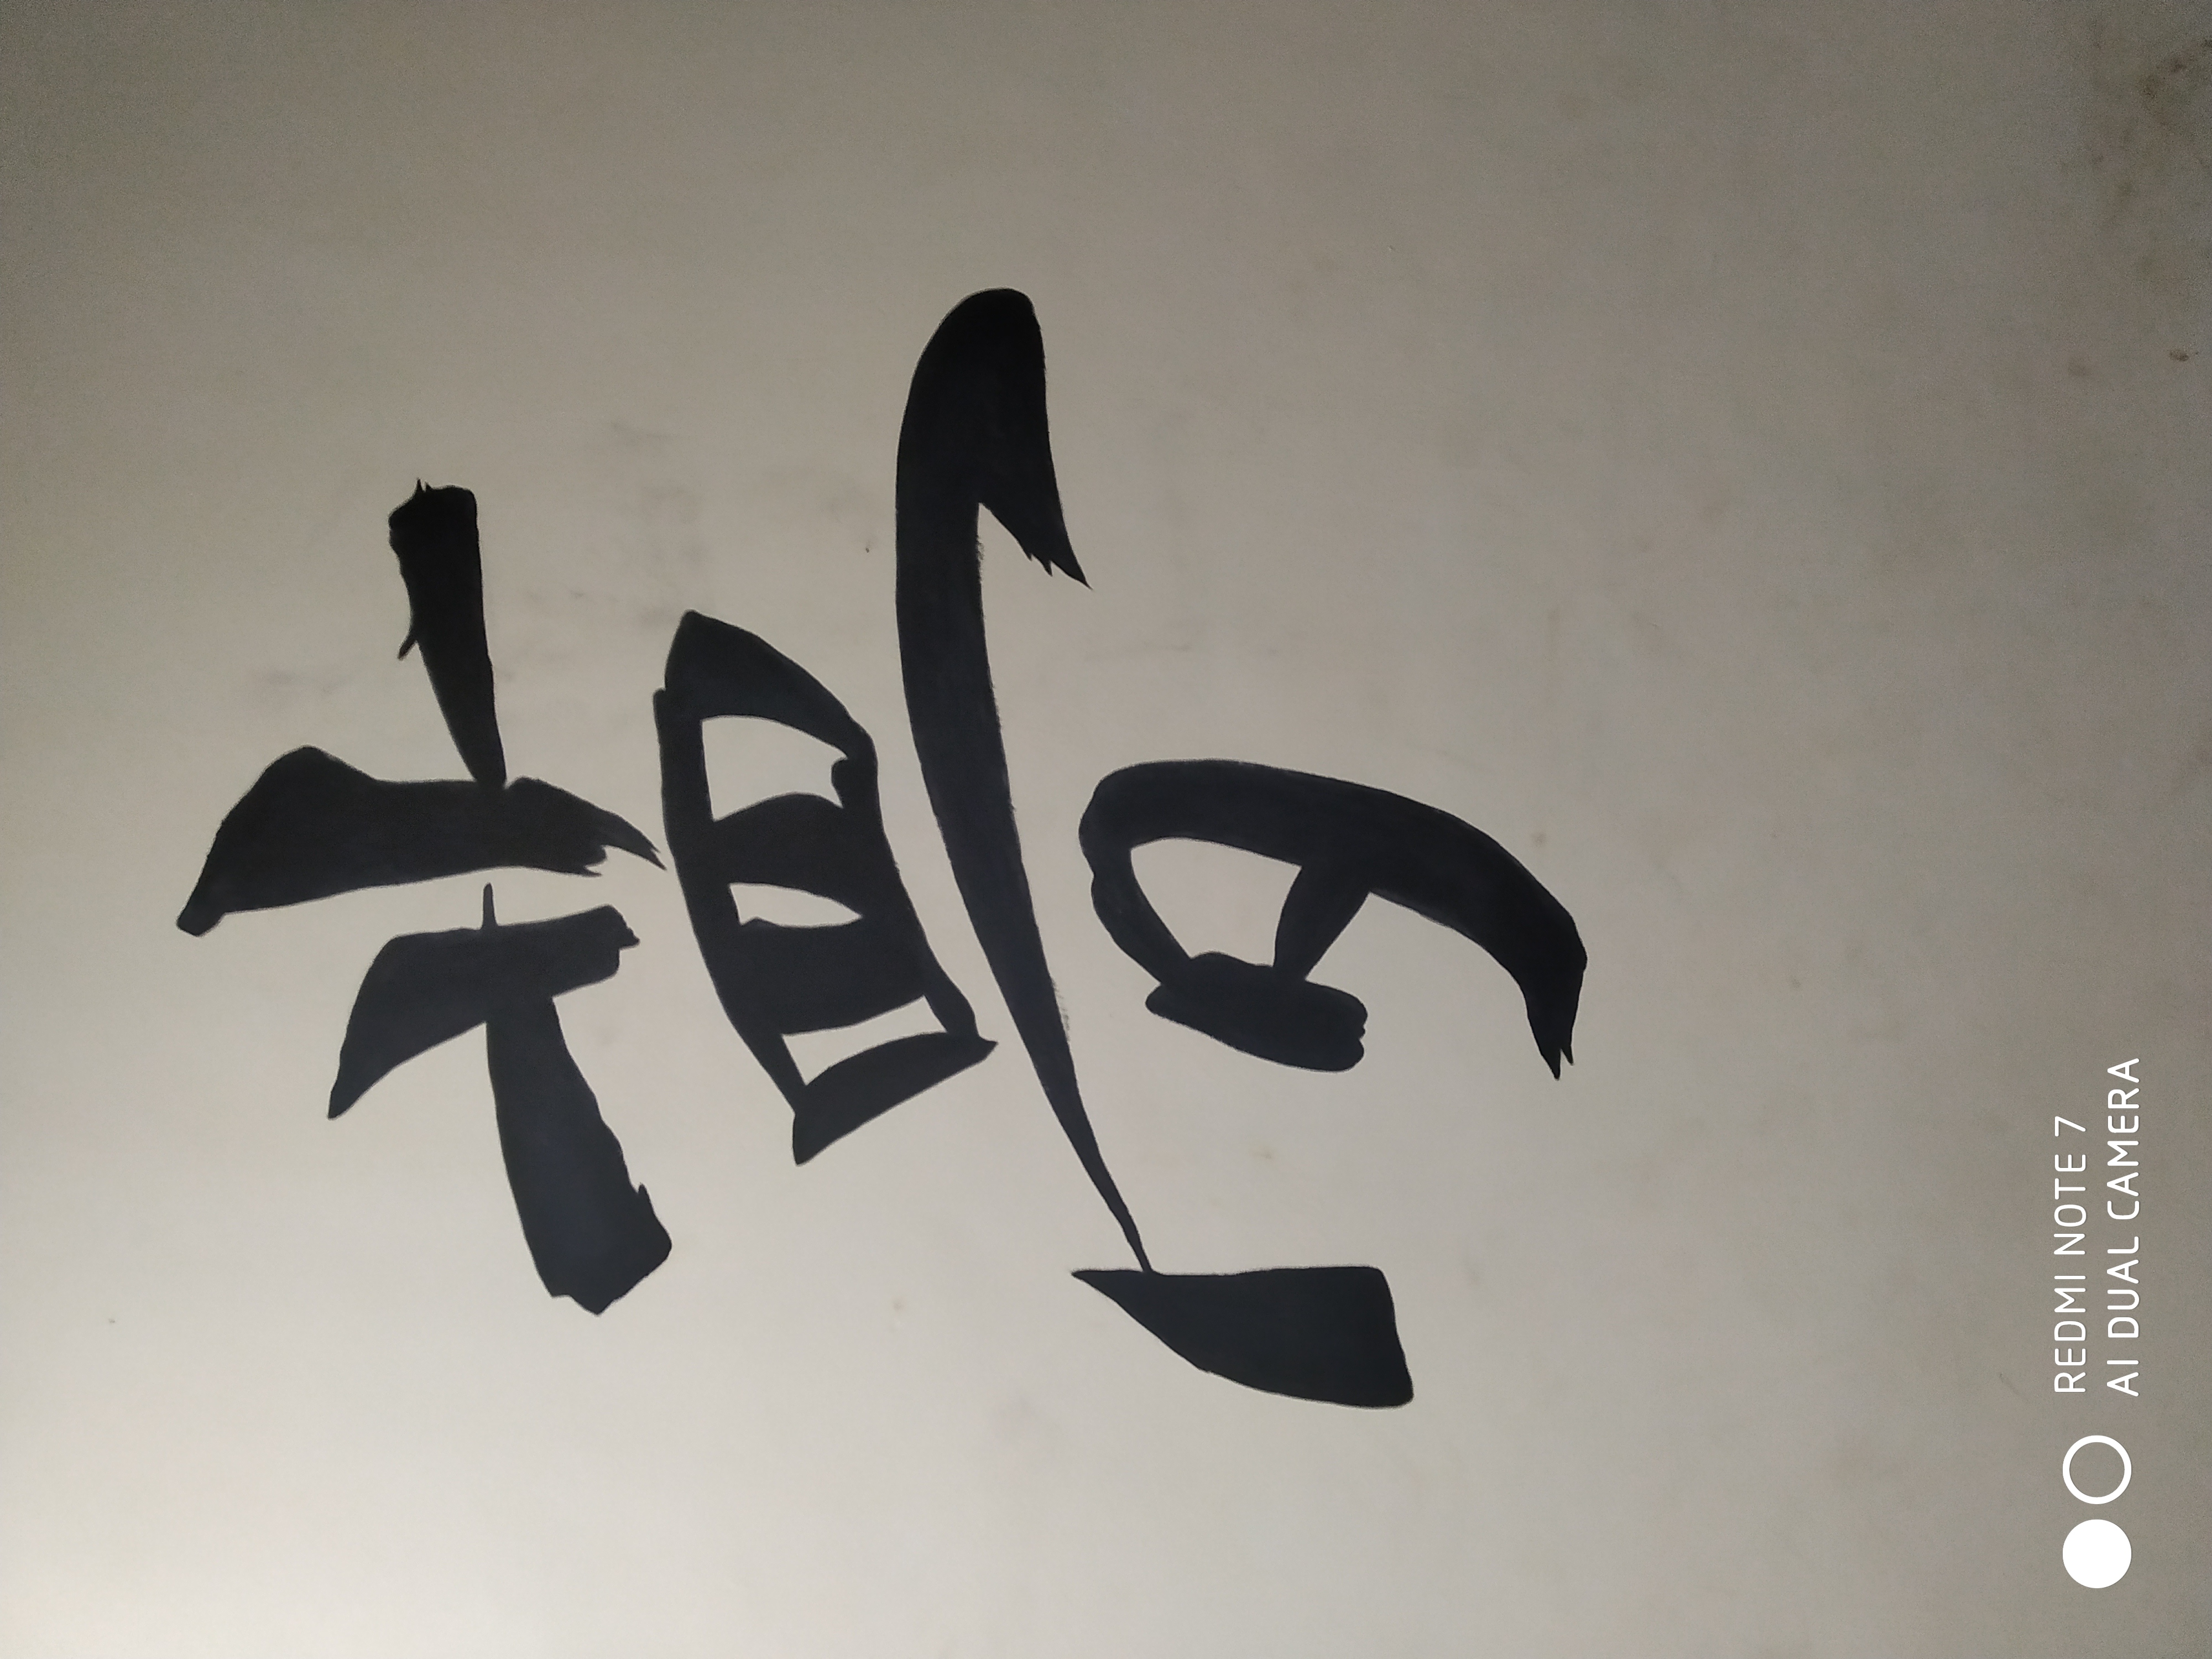 夢
REDMI NOTE 7
AI DUAL CAMERA